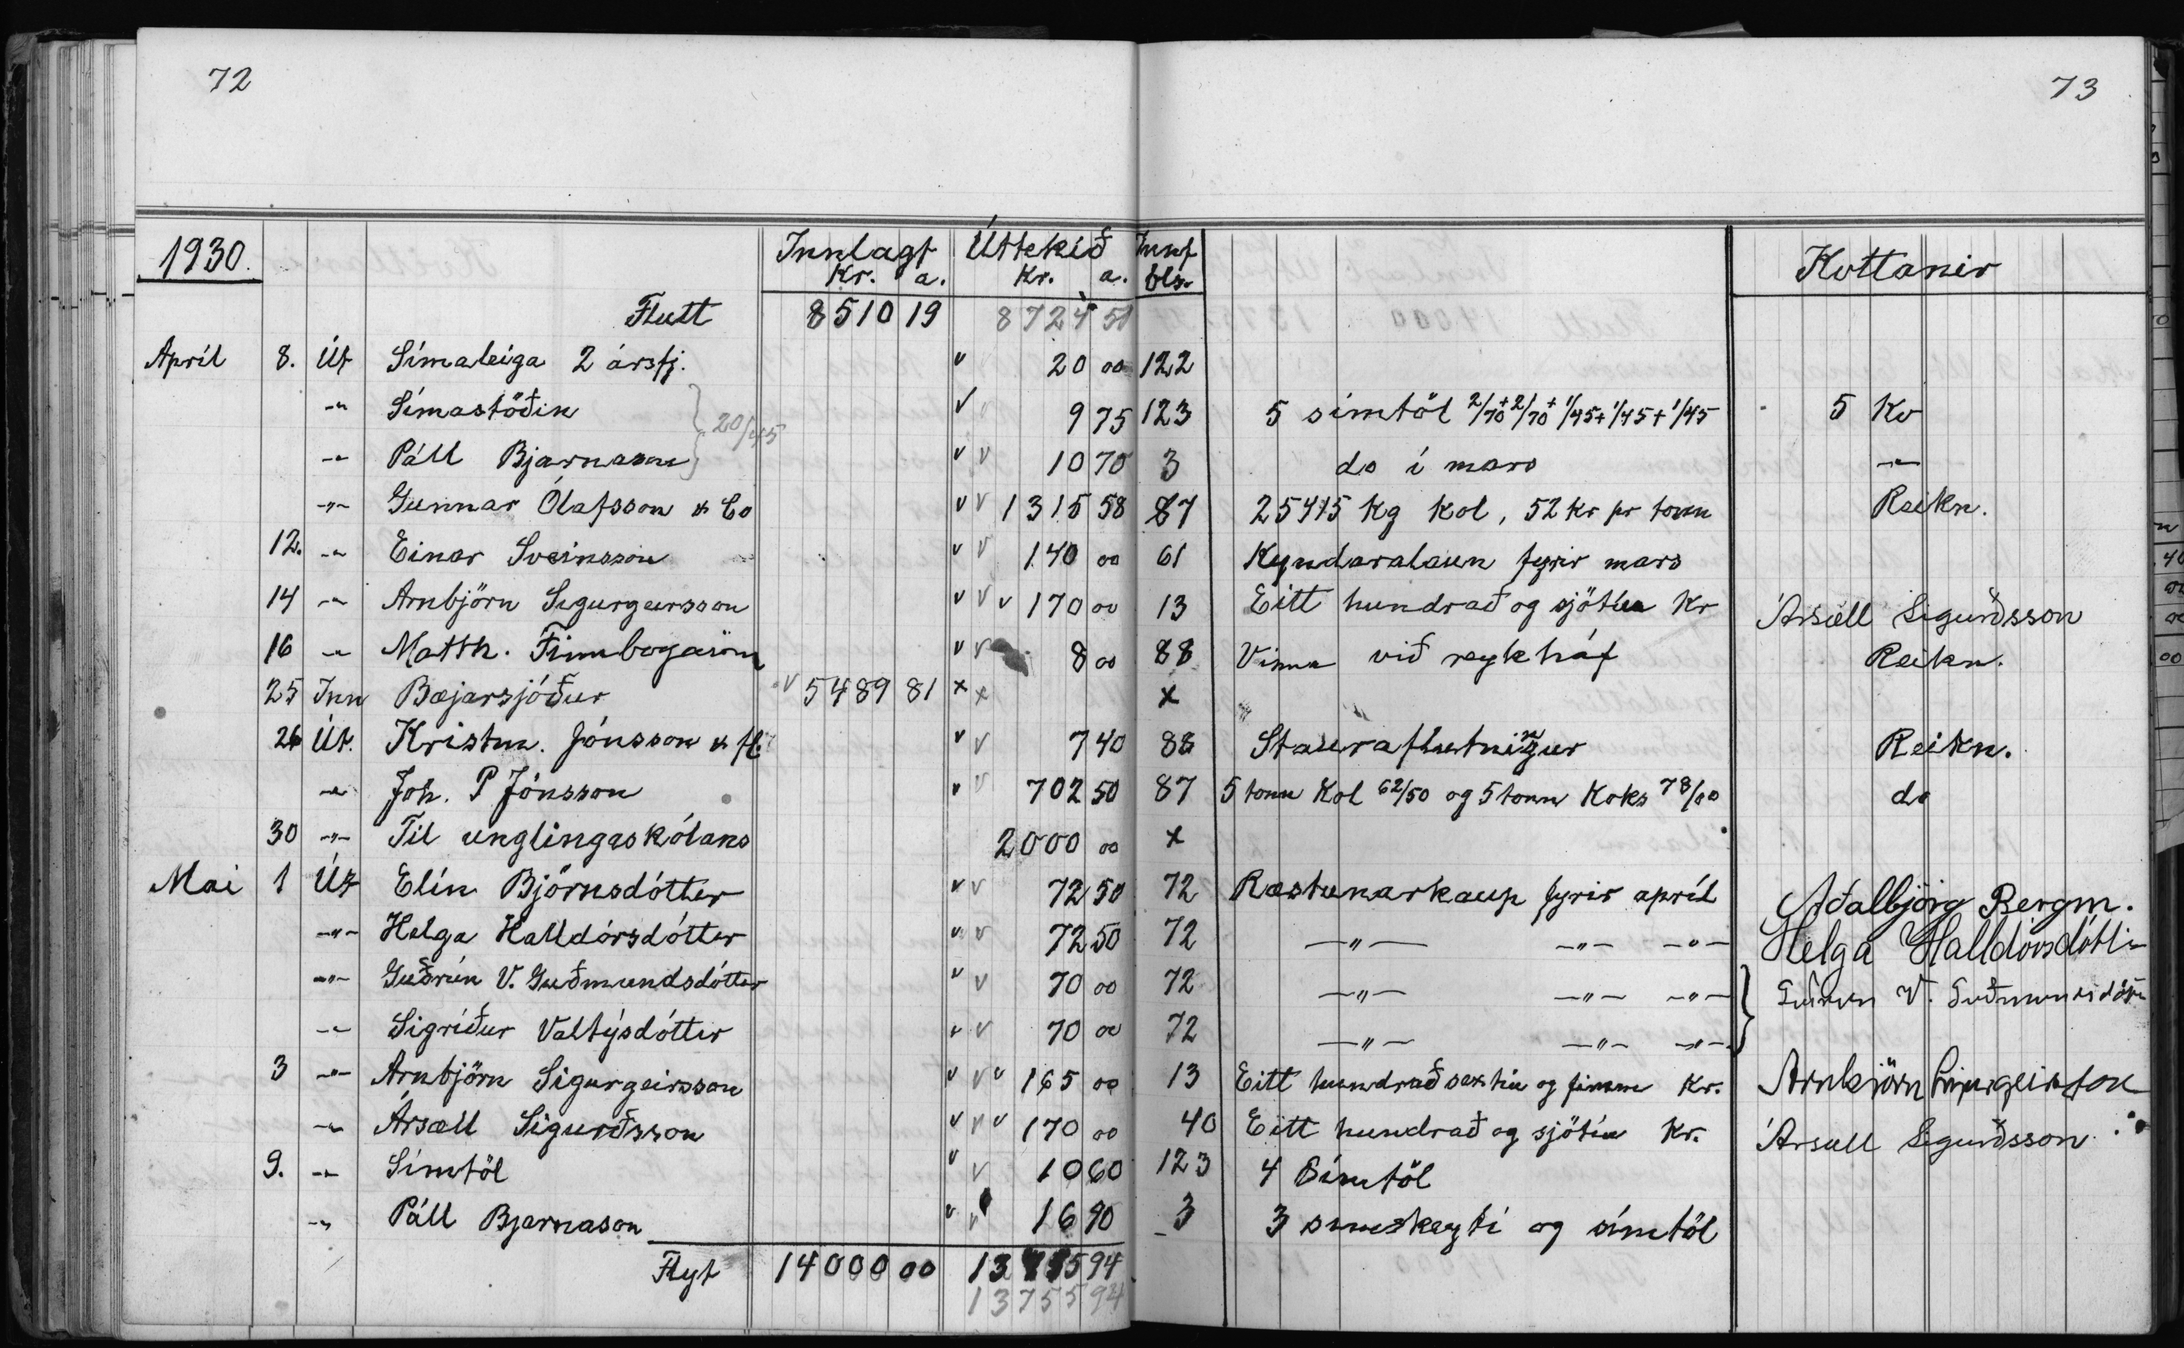 72
73
1930. Innlagt Úttekið Innf Kvittanir
Kr. a. Kr. a. bls.
Flutt 8510 19 8724 51
Apríl 8. Út Símaleiga 2 ársfj. " 20 00 122
-"- Símastöðin 9 75 123 5 símtöl 2/70+2/70+1/45+1/45+1/45 5 Kv
20/45
-"- Páll Bjarnason 10 70 3 do í mars -"-
-"- Gunnar Ólafsson & Co 1315 58 87 25415 kg kol, 52 kr pr tonn Reikn.
12. -"- Einar Sveinsson 140 00 61 Kyndaralaun fyrir mars
14 -"- Arnbjörn Sigurgeirsson 170 00 13 Eitt hundrað og sjötíu Kr Ársæll Sigurðsson
16 -"- Matth. Finnbogason 8 00 88 Vinna við reykháf Reikn.
25 Inn Bæjarsjóður 5489 81 x x x
26 Út. Kristm. Jónsson & fl. 7 40 88 Stauraflutningur Reikn.
-"- Joh. P Jónsson 702 50 87 5 tonn Kol 62/50 og 5 tonn Koks 78/00 do
30 -"- Til unglingaskólans 2000 00 x
Mai 1 Út Elín Björnsdóttir 72 50 72 Ræstunarkaup fyrir apríl Aðalbjörg Bergm.
-"- Helga Halldórsdóttir 72 50 72 -"- -"- -"- Helga Halldórsdóttir
-"- Guðrún V. Guðmundsdóttir 70 00 72 -"- -"- -"- Guðrún V. Guðmundsdóttir
-"- Sigríður Valtýsdóttir 70 00 72 -"- -"- -"-
3 -"- Arnbjörn Sigurgeirsson 165 00 13 Eitt hundrað sextíu og fimm Kr. Arnbjörn Sigurgeirsson
-"- Ársæll Sigurðsson 170 00 40 Eitt hundrað og sjötíu Kr. Ársæll Sigurðsson
9. -"- Símtöl 10 60 123 4 Símtöl
-"- Páll Bjarnason 16 90 3 3 símskeyti og símtöl
Flyt 14000 00 13755 94
13755 94